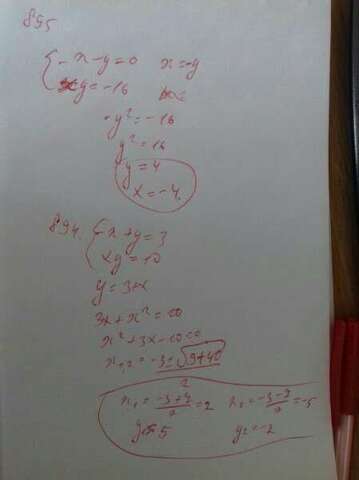 895
{ -x-y=0   x=-y
xy=-16
-y²=-16
y²=16
y=4
x=-4
894. { -x+y=3
xy=10
y=3+x
3x+x²=10
x²+3x-10=0
x₁,₂ = (-3±√(9+40))/2
x₁ = (-3+7)/2 = 2   x₂ = (-3-7)/2 = -5
y₁=5   y₂=-2